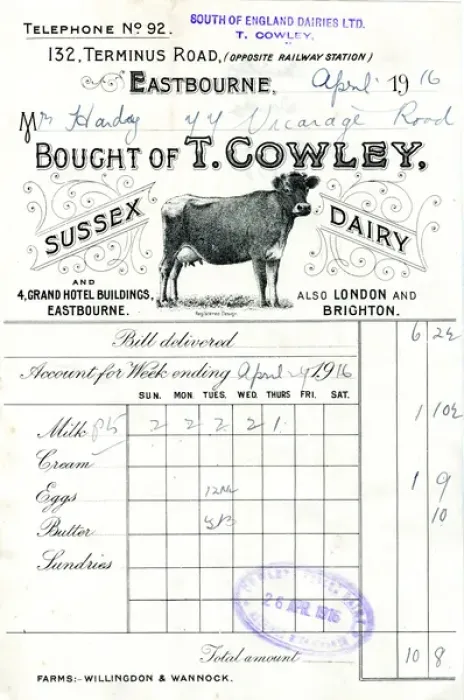 TELEPHONE No 92.
SOUTH OF ENGLAND DAIRIES LTD.
T. COWLEY.
132, TERMINUS ROAD, (OPPOSITE RAILWAY STATION)
EASTBOURNE, April 1916
Mrs Harday 44 Vicarage Road
BOUGHT OF T. COWLEY,
SUSSEX DAIRY
AND
4, GRAND HOTEL BUILDINGS,
EASTBOURNE.
Registered Design
ALSO LONDON AND
BRIGHTON.
Bill delivered 6 2½
Account for Week ending April 1916
SUN. MON. TUES. WED. THURS. FRI. SAT.
Milk pts 2 2 2 2 1 1 10½
Cream
Eggs 12 1 9
Butter ½lb 10
Sundries
26 APR 1916
Total amount 10 8
FARMS:- WILLINGDON & WANNOCK.